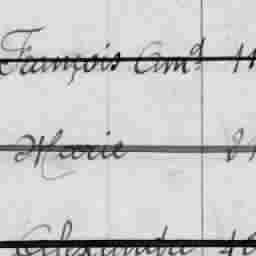 François Am.d
Marie
Alexandre